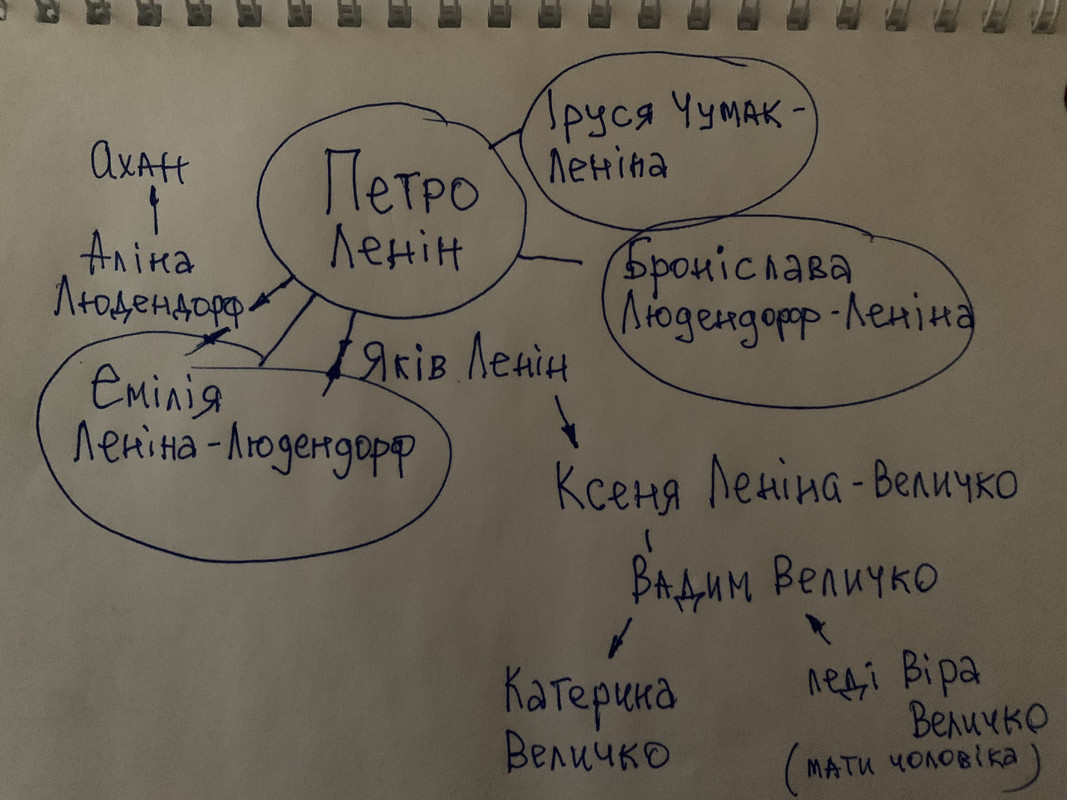 Іруся Чумак-
Леніна
Петро
Ленін
Ахан
Аліна
Людендорф
Броніслава
Людендорф-Леніна
Яків Ленін
Ємілія
Леніна-Людендорф
Ксеня Леніна-Величко
Вадим Величко
Катерина
Величко
леді Віра
Величко
(мати чоловіка)